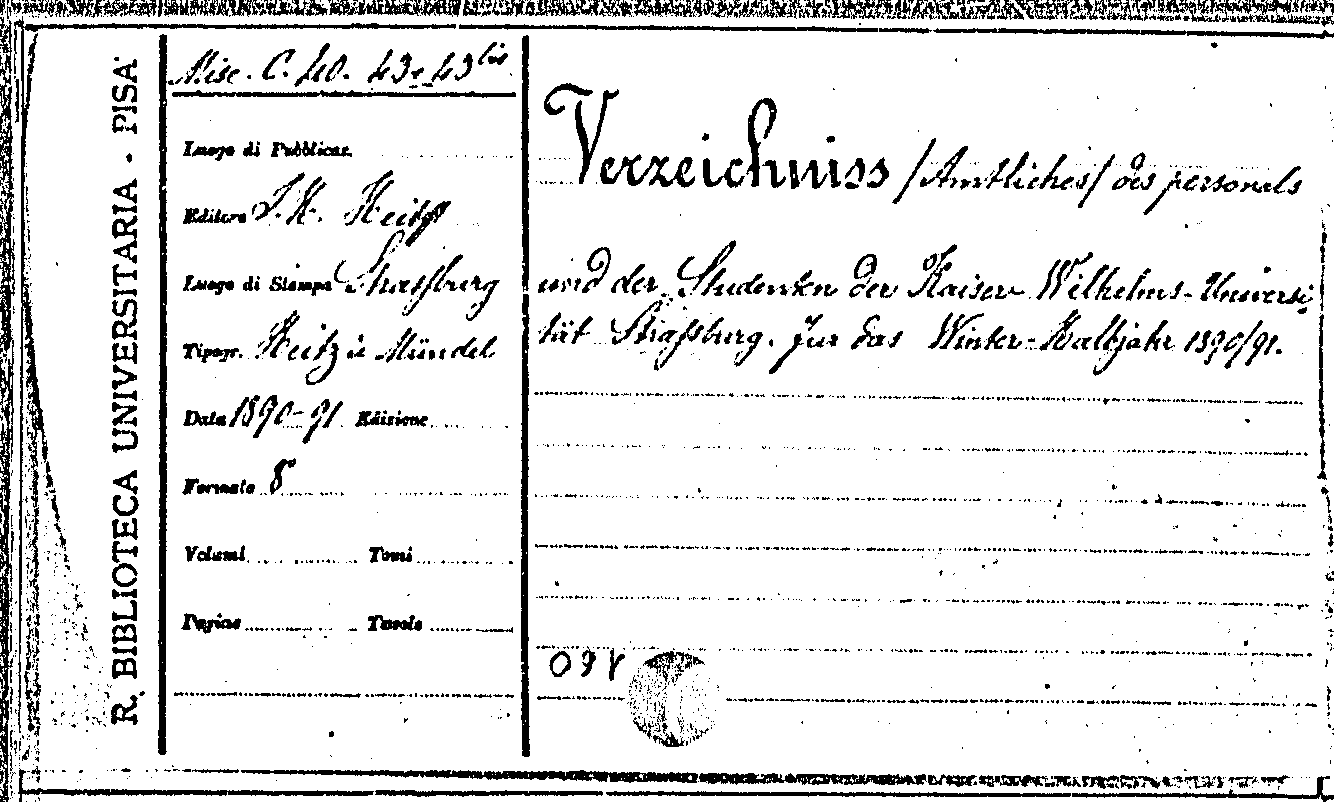 R. BIBLIOTECA UNIVERSITARIA - PISA
Misc. C. 40. 43 e 43 bis
Luogo di Pubblicaz.
Editore J. H. Heitz
Luogo di Stampa Strassburg
Tipogr. Heitz u Mündel
Data 1890-91 Edizione
Formato 8°
Volumi Tomi
Pagine Tavole
Verzeichniss /Amtliches/ des personals
und der Studenten der Kaiser Wilhelms-Universi
tät Strassburg. für das Winter-Halbjahr 1890/91.